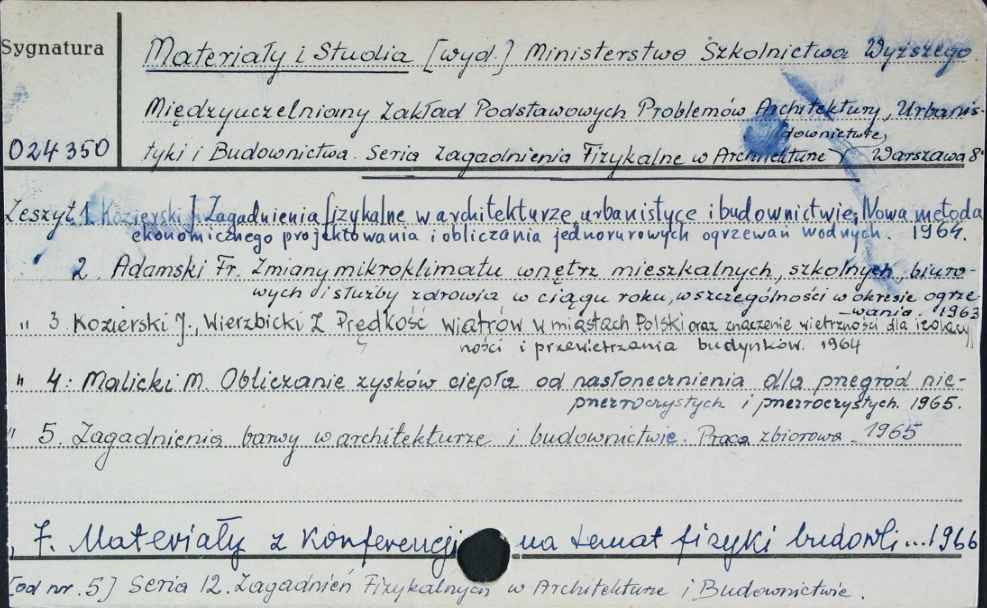 Sygnatura
024350
Materiały i Studia [wyd.] Ministerstwo Szkolnictwa Wyższego.
Międzyuczelniany Zakład Podstawowych Problemów Architektury, Urbanis-
tyki i Budownictwa. Seria Zagadnienia Fizykalne w Architekturze (downictwie, Warszawa 8°
Zeszyt 1 Kozierski J. Zagadnienia fizykalne w architekturze, urbanistyce i budownictwie. Nowa metoda
ekonomicznego projektowania i obliczania jednorurowych ogrzewań wodnych. 1964.
2 Adamski Fr. Zmiany mikroklimatu wnętrz mieszkalnych, szkolnych, biuro-
wych i służby zdrowia w ciągu roku, w szczególności w okresie ogrze-
wania. 1963
" 3 Kozierski J., Wierzbicki Z Prędkość wiatrów w miastach Polski oraz znaczenie wietrzności dla izolacyj
ności i przewietrzania budynków. 1964
" 4: Malicki M. Obliczanie zysków ciepła od nasłonecznienia dla przegród nie-
przezroczystych i przezroczystych. 1965.
" 5. Zagadnienia barwy w architekturze i budownictwie. Praca zbiorowa. 1965
" 7. Materiały z Konferencji na temat fizyki budowli...1966
[od nr. 5] Seria 12. Zagadnień Fizykalnych w Architekturze i Budownictwie.